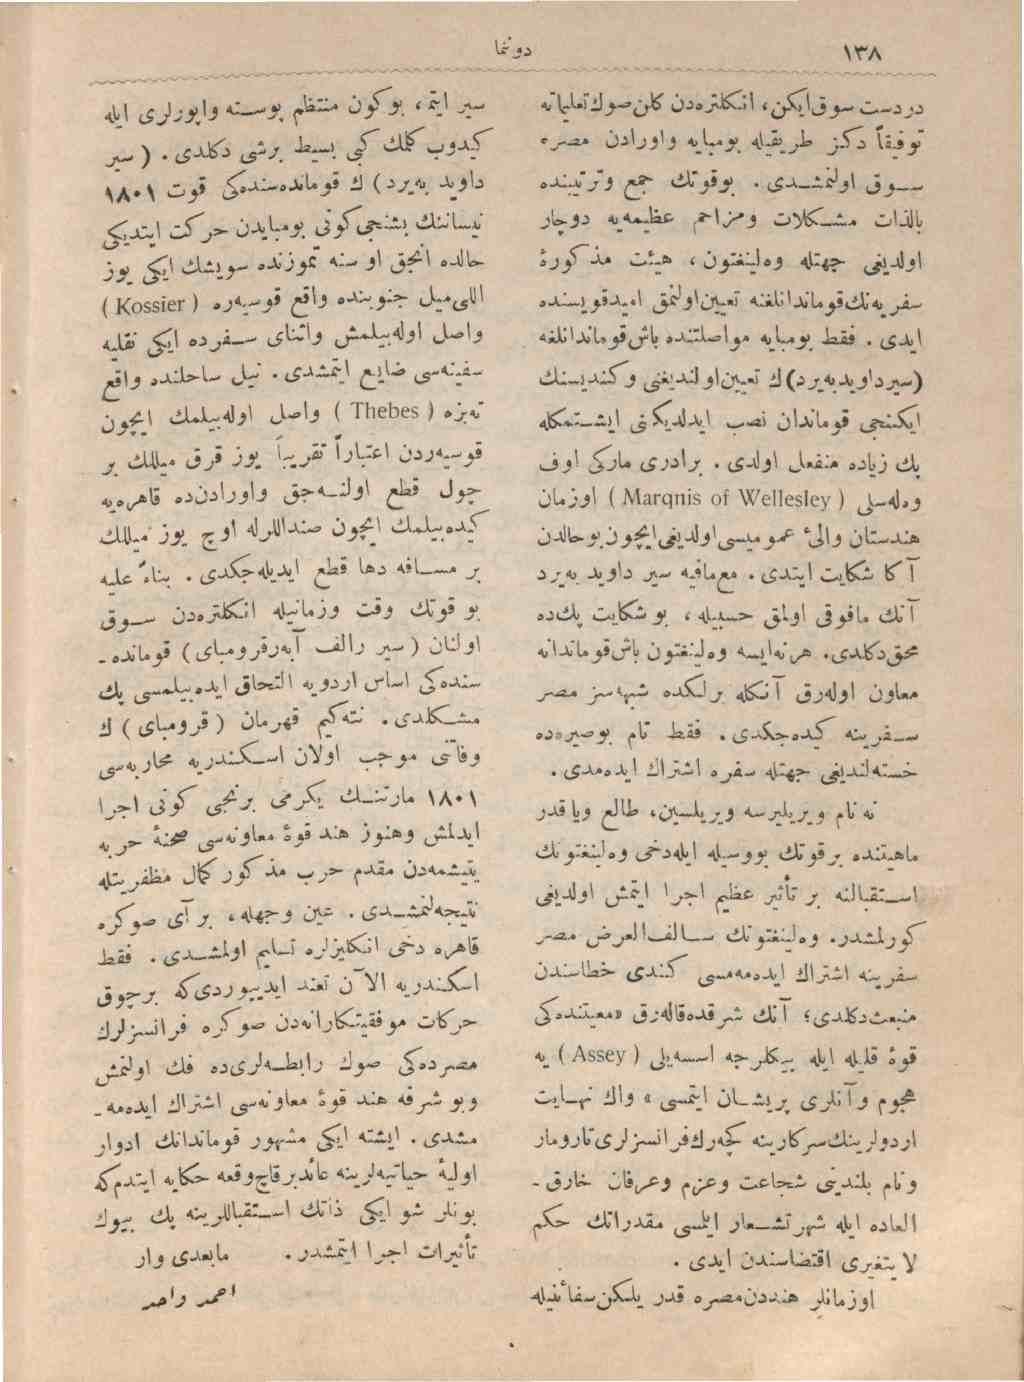 ١٣٨
دوننما
دردست سوق‌ایكن، انكلتره‌دن كلن‌صوك‌تعلیماته
توفیقاً دكز طریقیله بومبایه واورادن مصره
سوق اولنمشدی. بوقوتك جمع وترتیبنده
بالذات مشكلات ومزاحم عظیمه‌یه دوچار
اولدیغی جهتله وه‌لینغتون، هیئت مذكورهٔ
سفریه‌نك‌قوماندانلغنه تعیین‌اولنمق امیدقویسنده
ایدی. فقط بومبایه مواصلتنده باش‌قوماندانلغه
(سیرداویدبه‌یرد)ك تعیین‌اولندیغنی وكندیسنك
ایكنجی قوماندان نصب ایدلدیكنی ایشتمكله
پك زیاده منفعل اولدی. برادری ماركی اوف
وه‌له‌سلی (Marqnis of Wellesley) اوزمان
هندستان والئ عمومیسی‌اولدیغی‌ایچون‌بوحالدن
آكا شكایت ایتدی. مع‌مافیه سیر داوید به‌یرد
آنك مافوقی اولمق حسبیله، بو شكایت پك‌ده
محق‌دكلدی. هرنه‌ایسه وه‌لینغتون باش‌قوماندانه
معاون اوله‌رق آنكله برلكده شبهه‌سز مصر
سفرینه كیده‌جكدی. فقط تام بوصیره‌ده
خسته‌لندیغی جهتله سفره اشتراك ایده‌مدی.
نه نام ویریلیرسه ویریلسین، طالع ویاقدر
ماهیتنده برقوتك بووسیله ایله‌دخی وه‌لینغتونك
استقبالنه بر تأثیر عظیم اجرا ایتمش اولدیغی
كورلمشدر. وه‌لینغتونك سالف‌العرض مصر
سفرینه اشتراك ایده‌مه‌مسی كندی خطاسندن
منبعث‌دكلدی؛ آنك شرقده‌قاله‌رق «معیتنده‌كی
قوهٔ قلیله ایله بیكلرجه اسسه‌یلی (Assey) یه
هجوم وآنلری پریشان ایتمسی» واك نهایت
اردولرینك‌سركارینه كچه‌رك‌فرانسزلری‌تارومار
ونام بلندینی شجاعت وعزم وعرفان خارق-
العاده ایله شهرتشعار ایلمسی مقدراتك حكم
لایتغیری اقتضاسندن ایدی.
اوزمانلر هنددن‌مصره قدر یلكن‌سفائنیله
سیر ایتمه، بوكون منتظم پوسته واپورلری ایله
كیدوب كلمك كبی بسیط برشی دكلدی. (سیر
داوید به‌یرد)ك قومانده‌سنده‌كی قوت ١٨٠١
نیساننك بشنجی‌كونی بومبایدن حركت ایتدیكی
حالده انجق او سنه تموزنده سویشك ایكی یوز
اللی‌میل جنوبنده واقع قوسیه‌ره (Kossier)
واصل اوله‌بیلمش واثنای سفرده ایكی نقلیه
سفینه‌سی ضایع ایتمشدی. نیل ساحلنده واقع
ته‌بزه (Thebes) واصل اوله‌بیلمك ایچون
قوسیه‌ردن اعتباراً تقریباً یوز قرق میللك بر
چول قطع اولنه‌جق واورادن‌ده قاهره‌یه
كیده‌بیلمك ایچون صنداللرله اوچ یوز میللك
بر مسافه دها قطع ایدیله‌جكدی. بناءً علیه
بو قوتك وقت وزمانیله انكلتره‌دن سوق
اولنان (سیر رالف آبه‌رقرومبای) قومانده-
سنده‌كی اساس اردویه التحاق ایده‌بیلمسی پك
مشكلدی. نته‌كیم قهرمان (قرومبای)ك
وفاتنی موجب اولان اسكندریه محاربه‌سی
١٨٠١ مارتنك یكرمی برنجی كونی اجرا
ایدلمش وهنوز هند قوهٔ معاونه‌سی صحنهٔ حربه
یتیشمه‌دن مقدم حرب مذكور كمال مظفریتله
نتیجه‌لنمشدی. عین وجهله، بر آی صوكره
قاهره دخی انكلیزلره تسلیم اولمشدی. فقط
اسكندریه الآن تعند ایدییوردی‌كه برچوق
حركات موفقیتكارانه‌دن صوكره فرانسزلرك
مصرده‌كی صوك رابطه‌لری‌ده فك اولنمش
وبو شرفه هند قوهٔ معاونه‌سی اشتراك ایده‌مه-
مشدی. ایشته ایكی مشهور قوماندانك ادوار
اولیهٔ حیاتیه‌لرینه عائدبرقاچ‌وقعه حكایه ایتدم‌كه
بونلر شو ایكی ذاتك استقباللرینه پك بیوك
تأثیرات اجرا ایتمشدر. مابعدی وار
احمد واحد